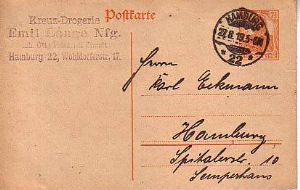 Postkarte
Kreuz-Drogerie
Emil Lange Nfg.
Hamburg 22, Wohldorferstr. 17.
HAMBURG
22.8.19.5-6N
* 22 *
Herrn
Karl Eckmann
Hamburg
Spitalerstr. 10
Semperhaus